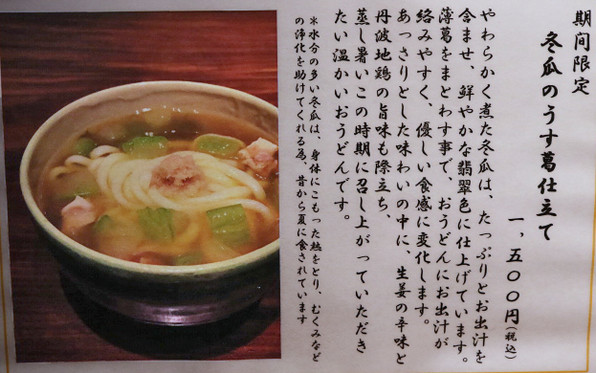 期間限定
冬瓜のうす葛仕立て
一,五〇〇円(税込)
やわらかく煮た冬瓜は、たっぷりとお出汁を
含ませ、鮮やかな翡翠色に仕上げています。
薄葛をまとわす事で、おうどんにお出汁が
絡みやすく、優しい食感に変化します。
あっさりとした味わいの中に、生姜の辛味と
丹波地鶏の旨味も際立ち、
蒸し暑いこの時期に召し上がっていただき
たい温かいおうどんです。
※水分の多い冬瓜は、身体にこもった熱をとり、むくみなど
の浄化を助けてくれる為、昔から夏に食されています